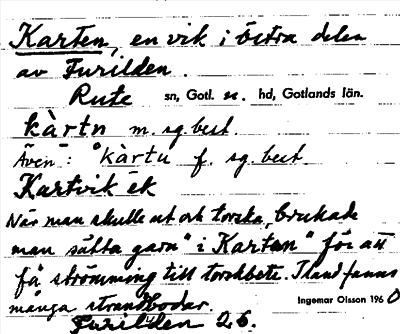 Karten, en vik i östra delen
av Furilden.
Rute sn, Gotl. n. hd, Gotlands län.
kàrtn m. sg. best.
Även: kàrtu f. sg. best.
Kartvik ek
När man skulle ut och torska, brukade
man "sätta garn" i Karten" för att
få strömming till torskbete. I land fanns
många strandbodar.
Ingemar Olsson 1960
Furilden 26.